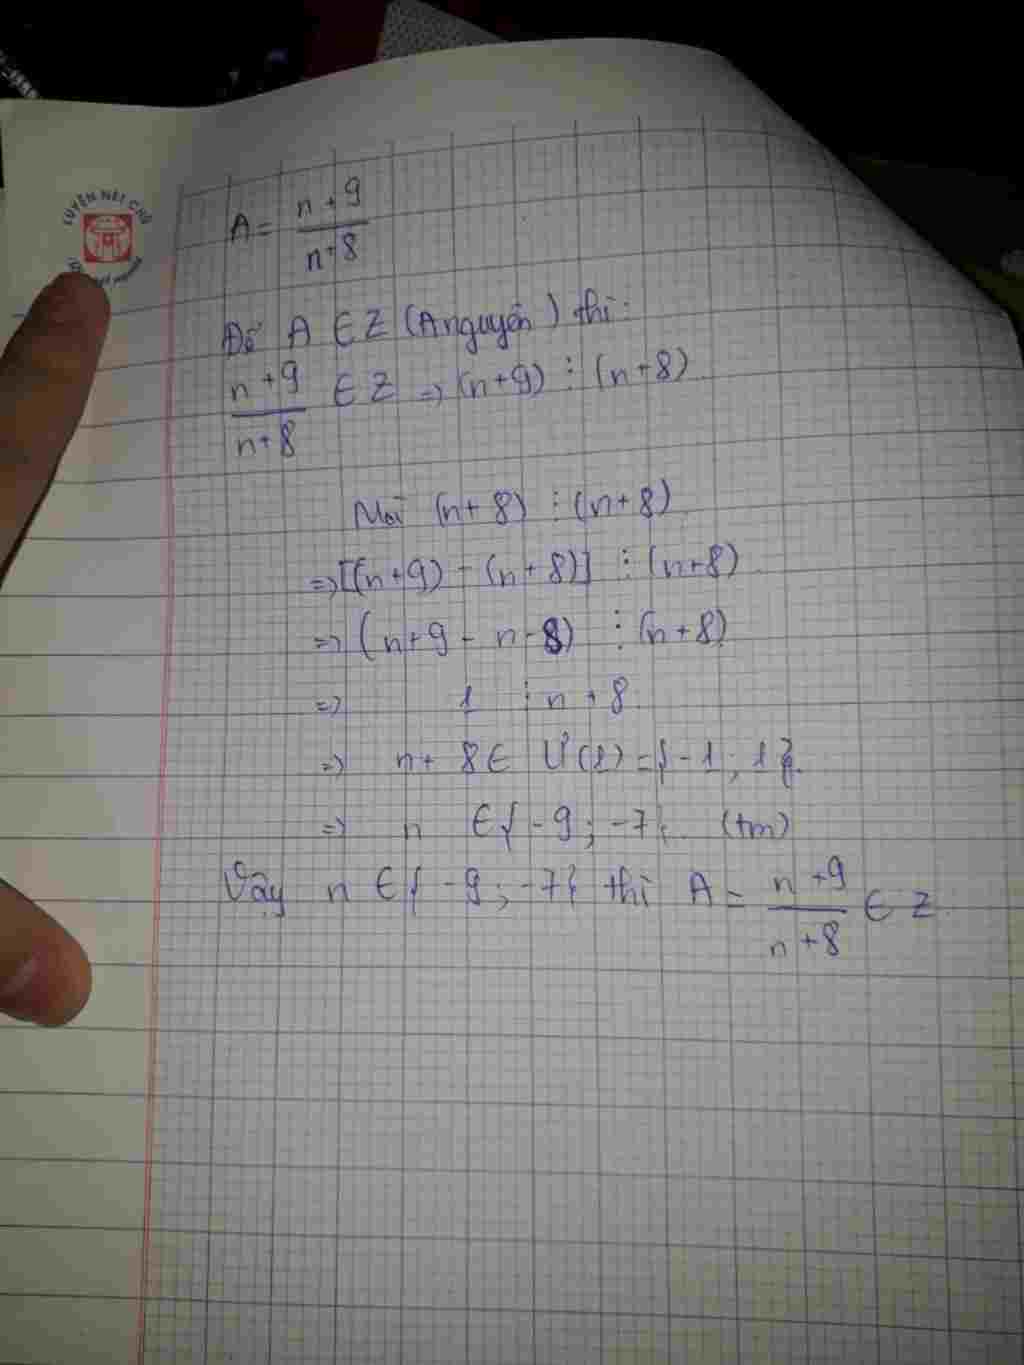 LUYỆN NÉT CHỮ
A = n + 9 / n + 8
Để A ∈ Z (A nguyên) thì:
n + 9 / n + 8 ∈ Z => (n + 9) ⋮ (n + 8)
Mà (n + 8) ⋮ (n + 8)
=> [(n + 9) - (n + 8)] ⋮ (n + 8)
=> (n + 9 - n - 8) ⋮ (n + 8)
=> 1 ⋮ n + 8
=> n + 8 ∈ Ư(1) = {-1; 1}.
=> n ∈ {-9; -7}. (tm)
Vậy n ∈ {-9; -7} thì A = n + 9 / n + 8 ∈ Z.